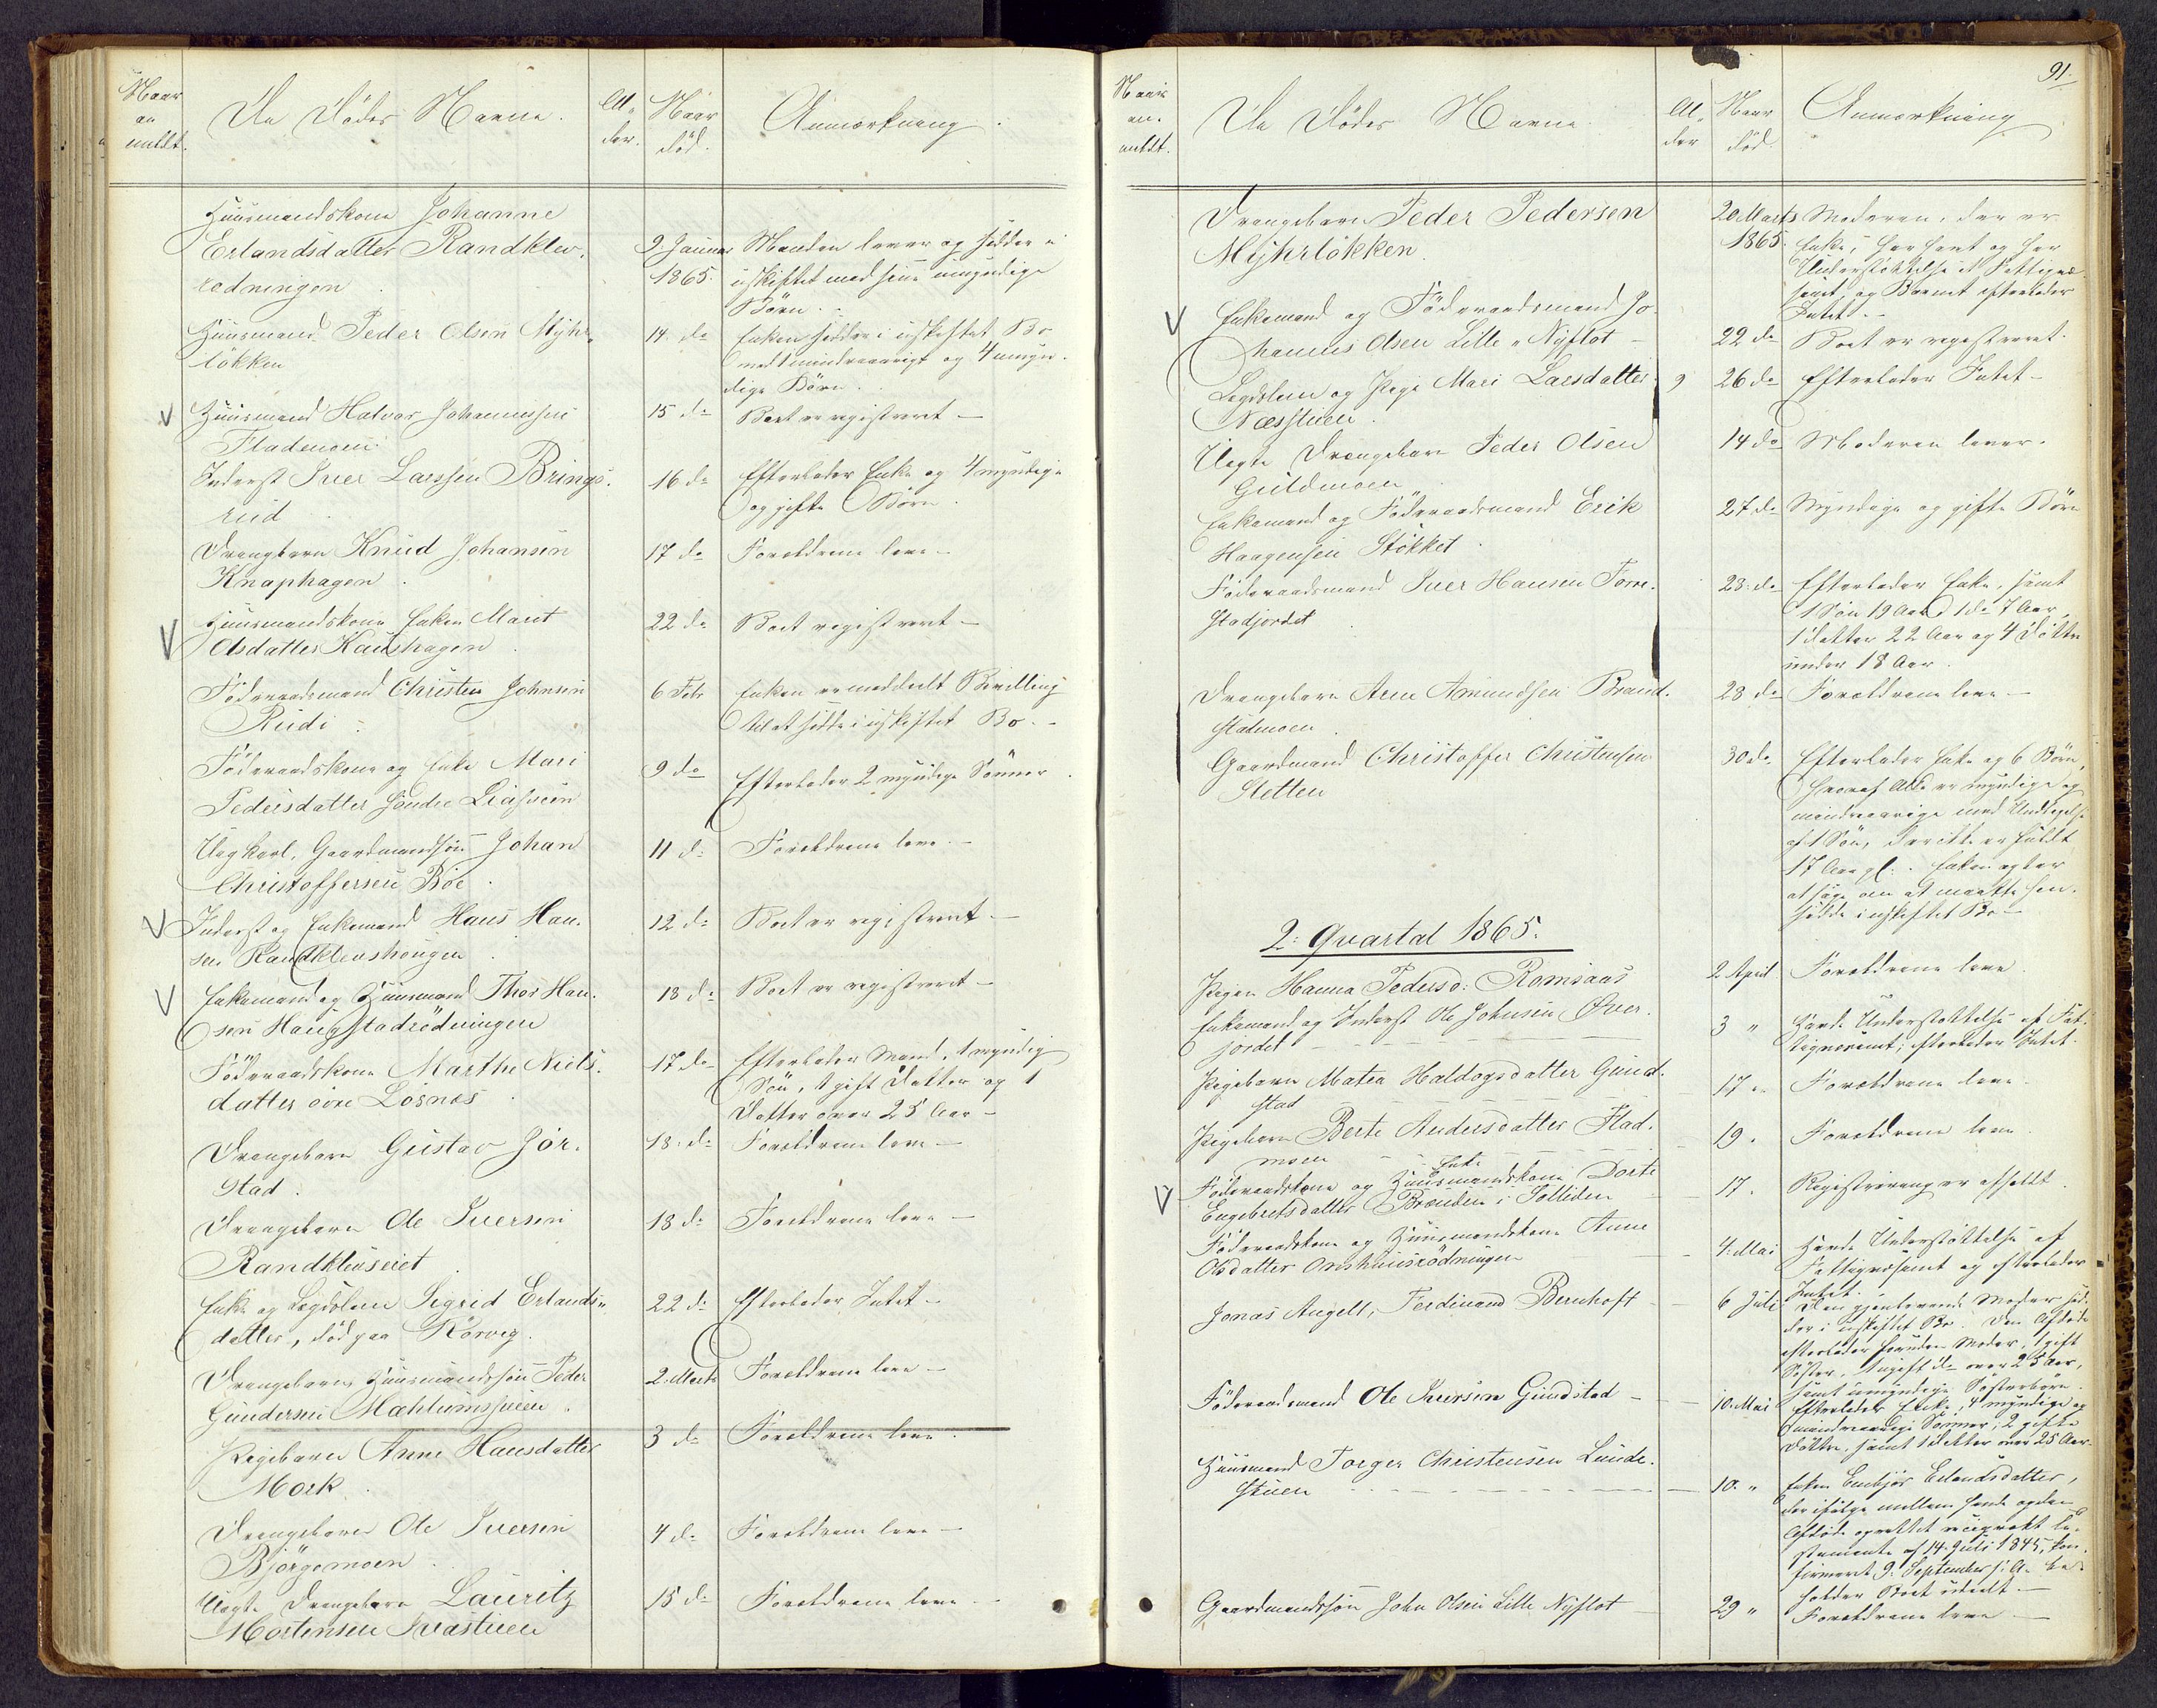 Naar
an
meldt.
De Dödes Navne.
Al-
der.
Naar
död.
Anmærkning.
Huusmandskone Johanne
Erlandsdatter Randklev-
rødningen
9. Januar
1865.
Manden lever og sidder i
uskiftet med sine umyndige
Børn.
Huusmand Peder Olsen Myhr-
løkken
14. do
Enken sidder i uskiftet Bo
med 1 mindreaarigt og 4 umyn-
dige Börn.
V Huusmand Halvor Johannessen
Flademoen
15 do
Boet er registreret –
Inderst Iver Larssen Brings-
rud
16 do
Efterlader Enke og 4 myndige
og gifte Börn.
Drengebarn Knud Johansen
Knaphagen
17 do
Forældrene leve –
V Huusmandskone Enken Marit
Olsdatter Haukshagen
22 do
Boet registreret –
Föderaadsmand Christen Johnsen
Rudi
6 Febr
Enken er meddeelt Bevilling
til at sidde i uskiftet Bo. –
Föderaadskone og Enke Mari
Pedersdatter söndre Liahseen
9 do
Efterlader 2 myndige Sønner
Ungkarl, Gaardmandssön Johan
Christoffersen Bøe
11 do
Forældrene leve. –
V Inderst og Enkemand Hans Han-
sen Randklevshougen
12 do
Boet er registreret –
V Enkemand og Huusmand Thor Han-
sen Haugstadrödningen
18 do
Boet er registreret –
Föderaadskone Marthe Niels-
datter øvre Lösnæs
17 do
Efterlader Mand, 1 myndig
Sön, 1 gift Datter og 1
Datter over 25 Aar –
Drengebarn Gustav Jör-
stad
18. do
Forældrene leve –
Drengebarn Ole Iversen
Randklevseiet
18 do
Forældrene leve –
Enke og Lægdslem Sigrid Erlands-
datter, död paa Kørveg.
22 do
Efterlader Intet –
Drengebarn, Huusmandssön Peder
Gundersen Mæhlumsstuen
2. Marts
Forældrene leve –
Pigebarn Anne Hansdatter
Mork
3 do
Forældrene leve.
Drengebarn Ole Iversen
Bjørgemoen
4 do
Forældrene leve –
Uægte Drengebarn Lauritz
Mortensen Kvastuen
15 do
Forældrene leve –
91.
Naar
an-
meldt.
De Dödes Navne
Al-
der
Naar
död.
Anmærkning
Drengebarn Peder Pedersen
Myhrløkken.
20 Marts
1865.
Moderen, der er
Enke, har havt og har
Understøttelse af Fattigvæ-
senet, og Barnet efterlader
Intet. –
V Enkemand og Föderaadsmand Jo-
hannes Olsen Lille-Nyflot –
22 do
Boet er registreret.
Lægdslem og Pige Mari Larsdatter
Næsstuen.
26 do
Efterlader Intet –
Uægte Drengebarn Peder Olsen
Guldmoen
14 do
Moderen lever.
Enkemand og Föderaadsmand Erik
Haagensen Stökket
27 do
Myndige og gifte Börn
Föderaadsmand Iver Hansen Torre-
stadjordet
23. do
Efterlader Enke, samt
1 Sön 19 Aar, 1 do 7 Aar,
1 Datter 22 Aar og 4 Döttre
under 18 Aar.
Drengebarn Arne Amundsen Brand-
stadmoen
28 do
Forældrene leve –
Gaardmand Christoffer Christensen
Sletten
30 do
Efterlader Enke og 6 Börn,
hvoraf Alle er myndige og
mindreaarige med Undtagelse
af 1 Sön, der ikke er fuldt
17 Aar gl. Enken agter
at søge om at maatte hen-
sidde i uskiftet Bo –
2. Qvartal 1865.
Pigen Hanna Pedersd: Romsaas
2 April
Forældrene leve
Enkemand og Inderst Ole Johnsen Øver-
jordet
3 "
Havde Understøttelse af Fat-
tigvæsenet; efterlader Intet.
Pigebarn Matea Haldogsdatter Gund-
stad
17 "
Forældrene leve.
Pigebarn Berte Andersdatter Flad-
moen
19 "
Forældrene leve.
V Föderaadskone og Enke Huusmandskone Dorte
Engebretsdatter Brænden i Solliden
17 "
Registrering er afholdt.
Föderaadskone og Huusmandskone Anne
Olsdatter Onshuusrödningen
4. Mai
Havde Understøttelse af
Fattigvæsenet og efterlader
Intet.
Jonas Angell, Ferdinand Bernhoft –
6 Juli
Den gjenlevende Moder sid-
der i uskiftet Bo. Den Afdöde
efterlader foruden Moder, 1 gift
Söster, 1 ugift do over 25 Aar,
samt umyndige Sösterbörn.
Föderaadsmand Ole Iversen Gundstad –
10. Mai
Efterlader Enke, 4 myndige og
mindreaarige Sönner, 2 gifte
Döttre, samt 1 Datter over 25 Aar.
Huusmand Torger Christensen Lunde-
stuen
10. "
Enken Embjör Erlandsdatter,
der ifølge mellem hende og den
Afdöde oprettet reciprokt Te-
stamente af 14. Juli 1845, kon-
firmeret 9. September s. A. be-
holder Boet udeelt. –
Gaardmandssön John Olsen Lille Nyflot
29 "
Forældrene leve –